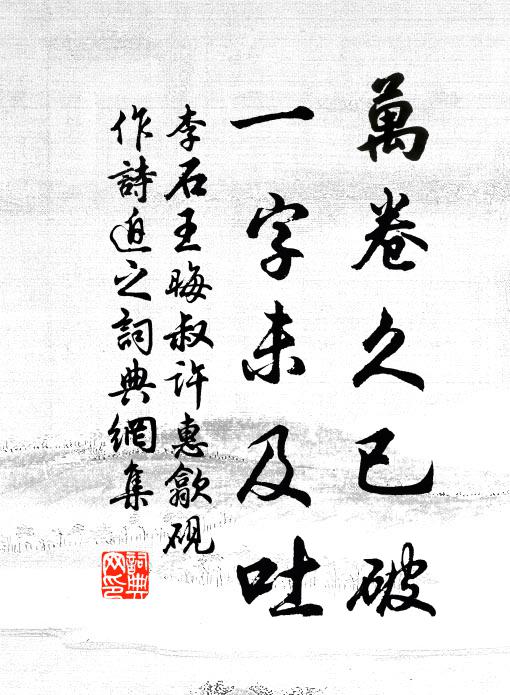 萬卷久已破
一字未及吐
李石王晦叔許惠歙硯
作詩迫之詞典網集
詞典
网印